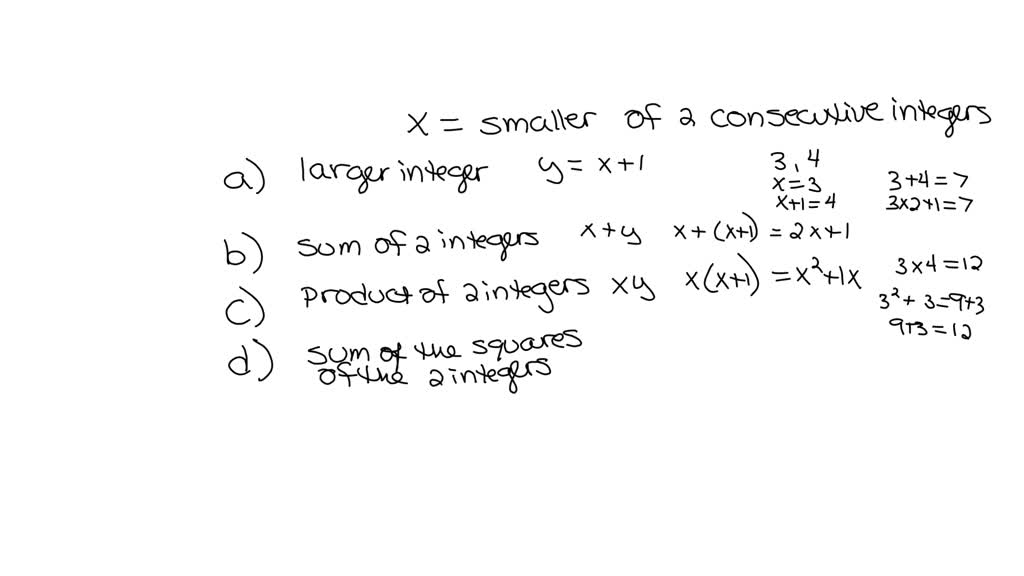 x = smaller of 2 consecutive integers
a) larger integer y = x+1
3, 4
x=3
x+1=4
3+4=7
3x2+1=7
b) sum of 2 integers x+y x+(x+1) = 2x+1
c) product of 2 integers xy x(x+1) = x²+1x
3x4=12
3²+ 3=9+3
9+3=12
d) sum of the squares
of the 2 integers